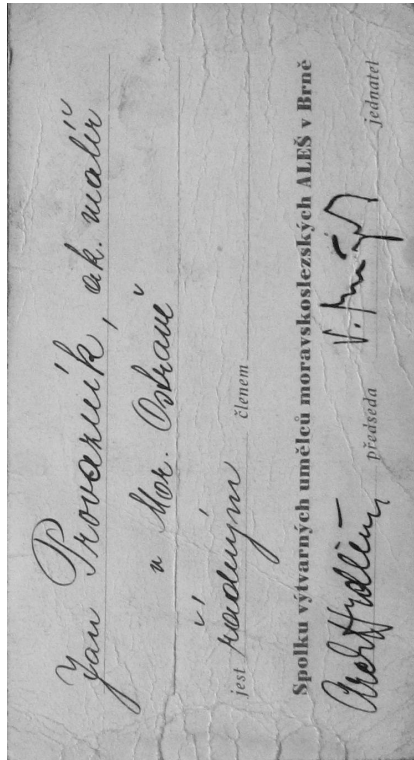 Jan Provazník, ak. malíř
v Mor. Ostravě
jest řádným členem
Spolku výtvarných umělců moravskoslezských ALEŠ v Brně
předseda jednatel